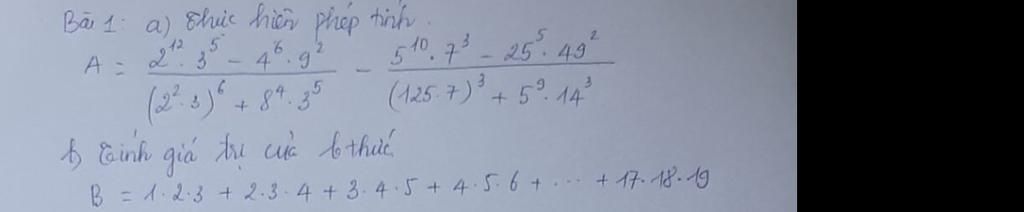 Bài 1: a) Thực hiện phép tính.
A = \frac{2^{12} \cdot 3^5 - 4^6 \cdot 9^2}{(2^2 \cdot 3)^6 + 8^4 \cdot 3^5} - \frac{5^{10} \cdot 7^3 - 25^5 \cdot 49^2}{(125 \cdot 7)^3 + 5^9 \cdot 14^3}
b) Tính giá trị của b thức
B = 1·2·3 + 2·3·4 + 3·4·5 + 4·5·6 + ... + 17·18·19